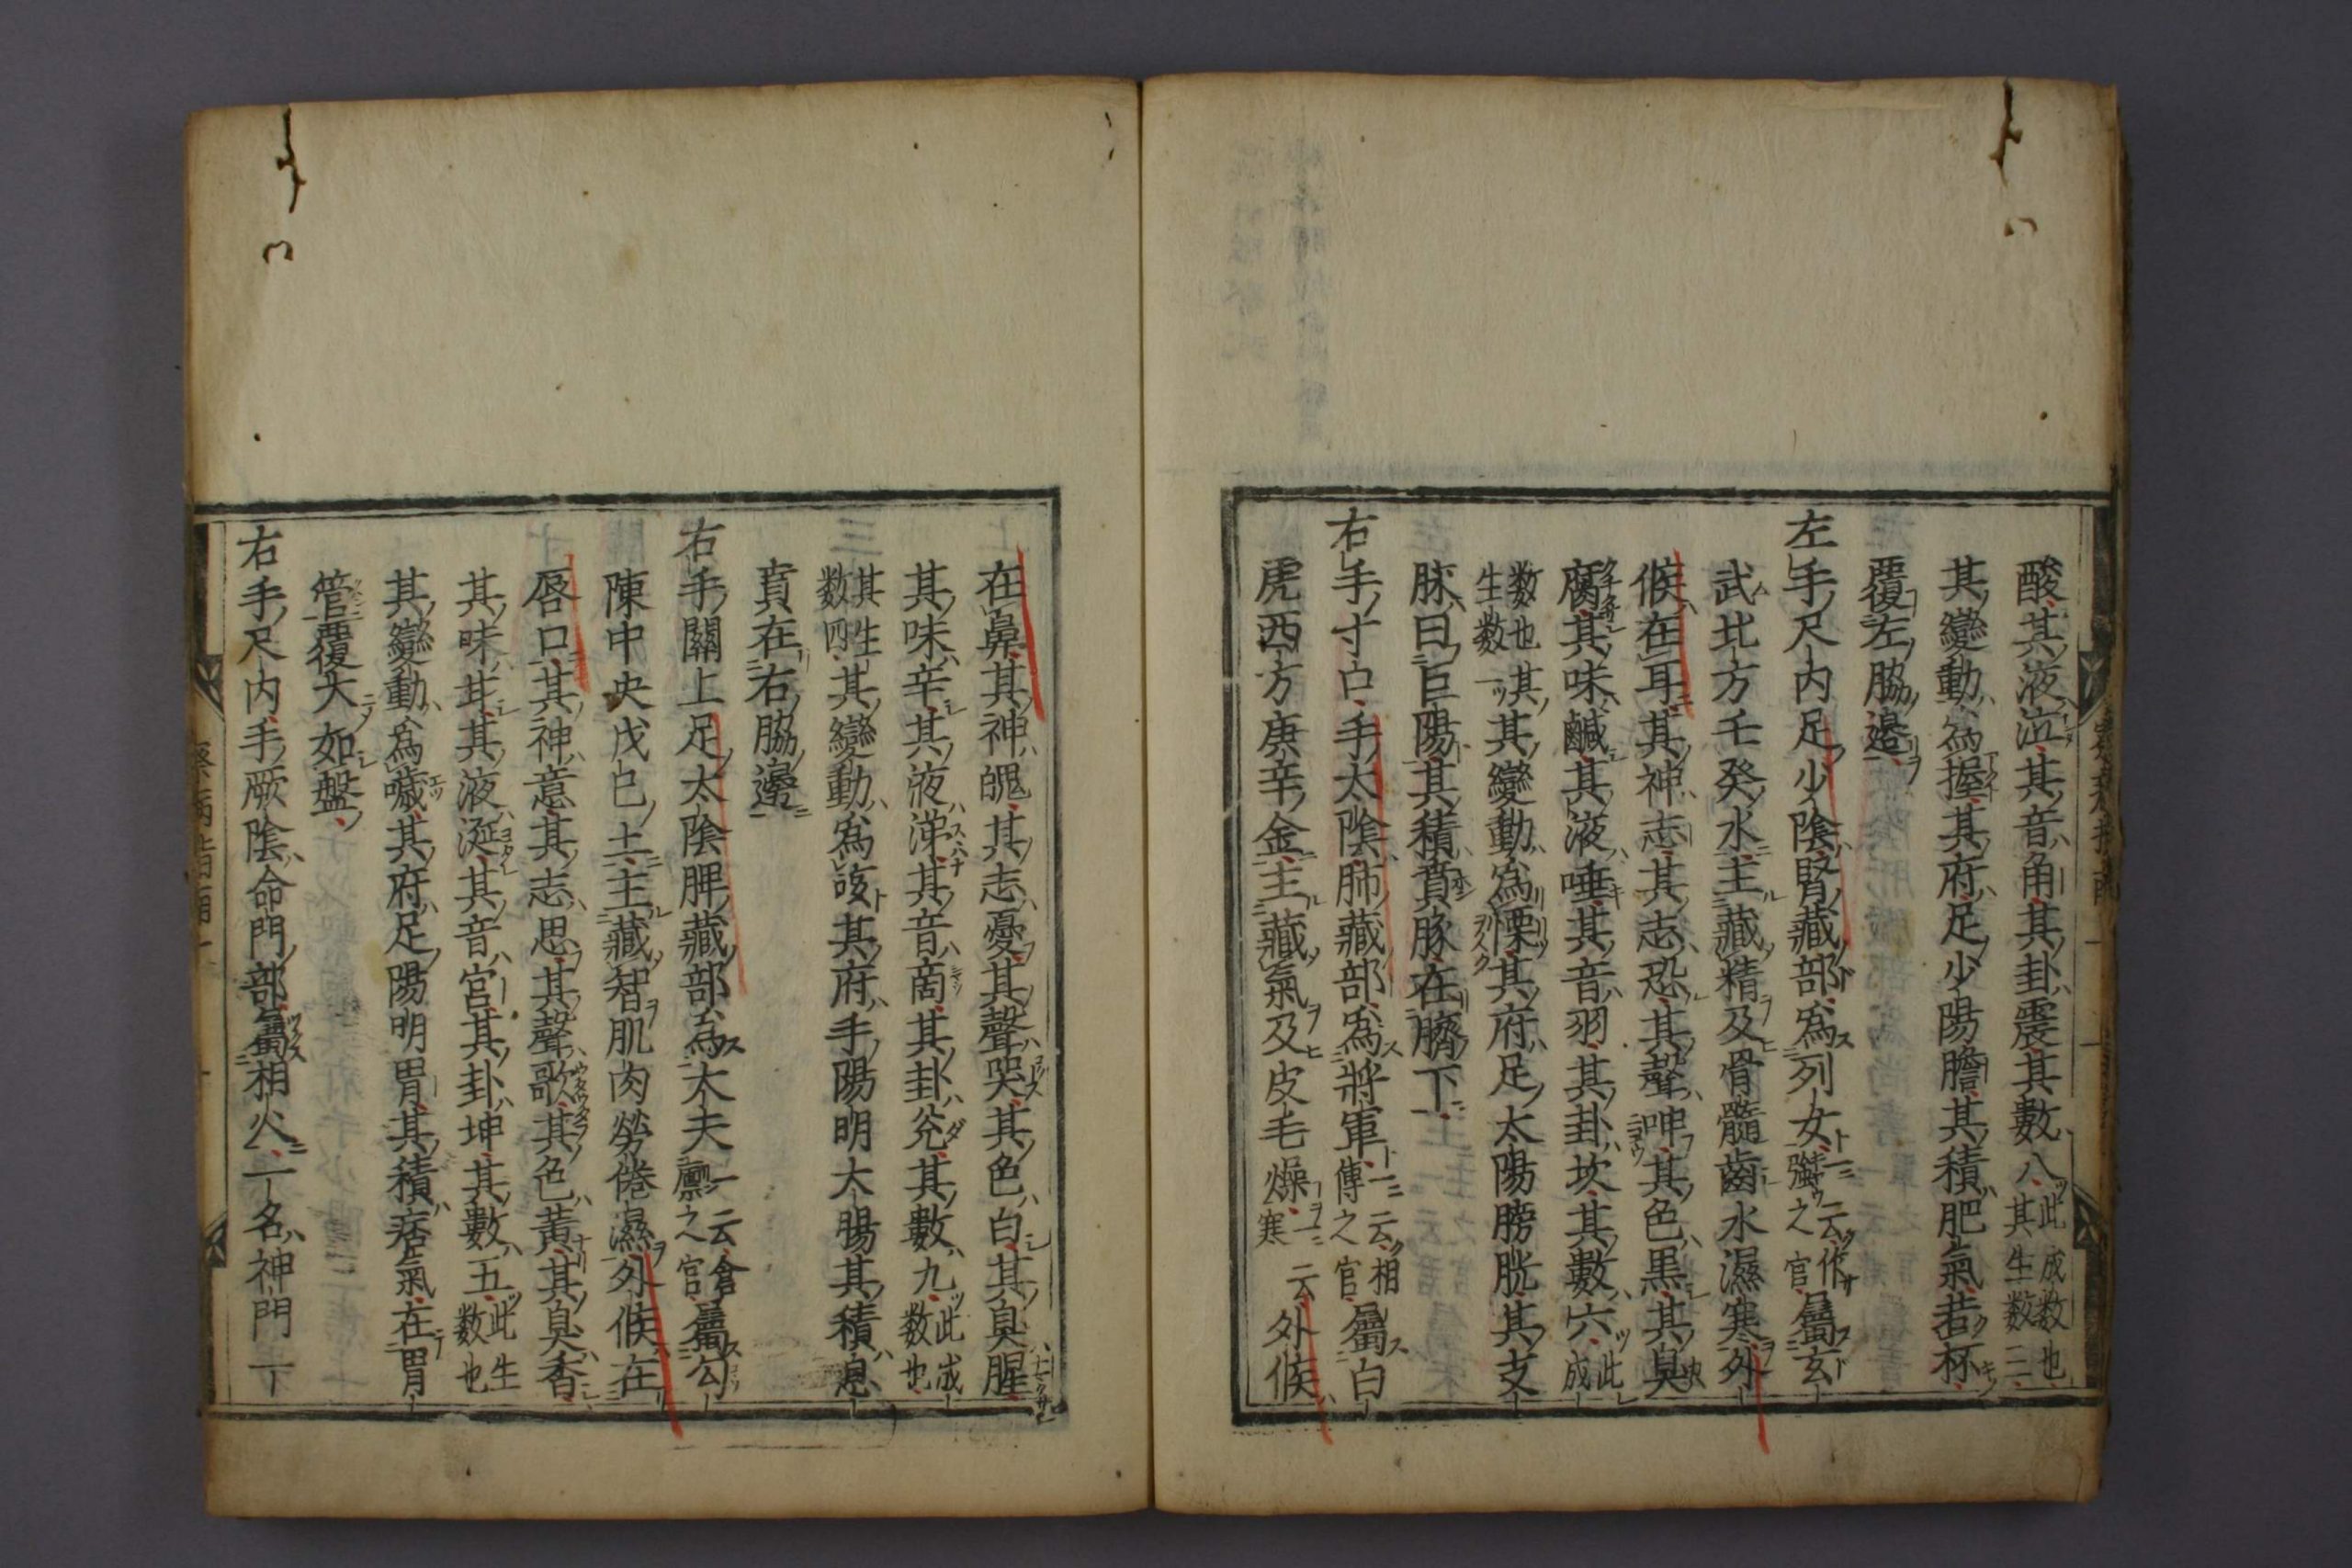 酸其液泣其音角其卦震其數八此成数也其生数三
其變動為握其府足少陽膽其積肥氣若杯
覆左脇邉
左手尺内足少陰腎藏部為列女一云作強之官屬玄
武北方壬癸水主藏精及骨髓齒水濕寒外
候在耳其神志其志恐其聲呻其色黒其臭
腐其味鹹其液唾其音羽其卦坎其數六此成
数也其生数一其變動為慄其府足太陽膀胱其支
脉曰巨陽其積賁豚在臍下
右手寸口手太陰肺藏部為將軍一云相傳之官屬白
虎西方庚辛金主藏氣及皮毛燥一云寒外候
在鼻其神魄其志憂其聲哭其色白其臭腥
其味辛其液涕其音商其卦兊其數九此成数也
其生数四其變動為咳其府手陽明大腸其積息
賁在右脇邊
右手關上足太陰脾藏部為大夫一云倉廪之官屬勾
陳中央戊巳土主藏智肌肉勞倦濕外候在
唇口其神意其志思其聲歌其色黄其臭香
其味甘其液涎其音宫其卦坤其數五此生数也
其變動為噦其府足陽明胃其積痞氣在胃
管覆大如盤
右手尺内手厥陰命門部屬相火一名神門一